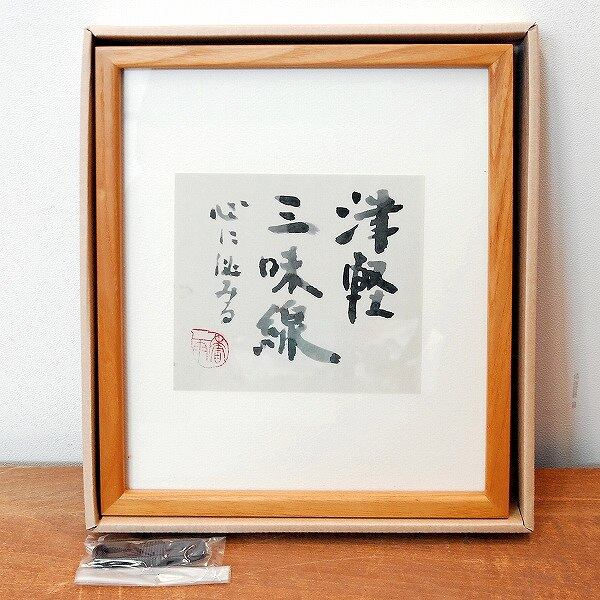 津軽
三味線
心に沁みる